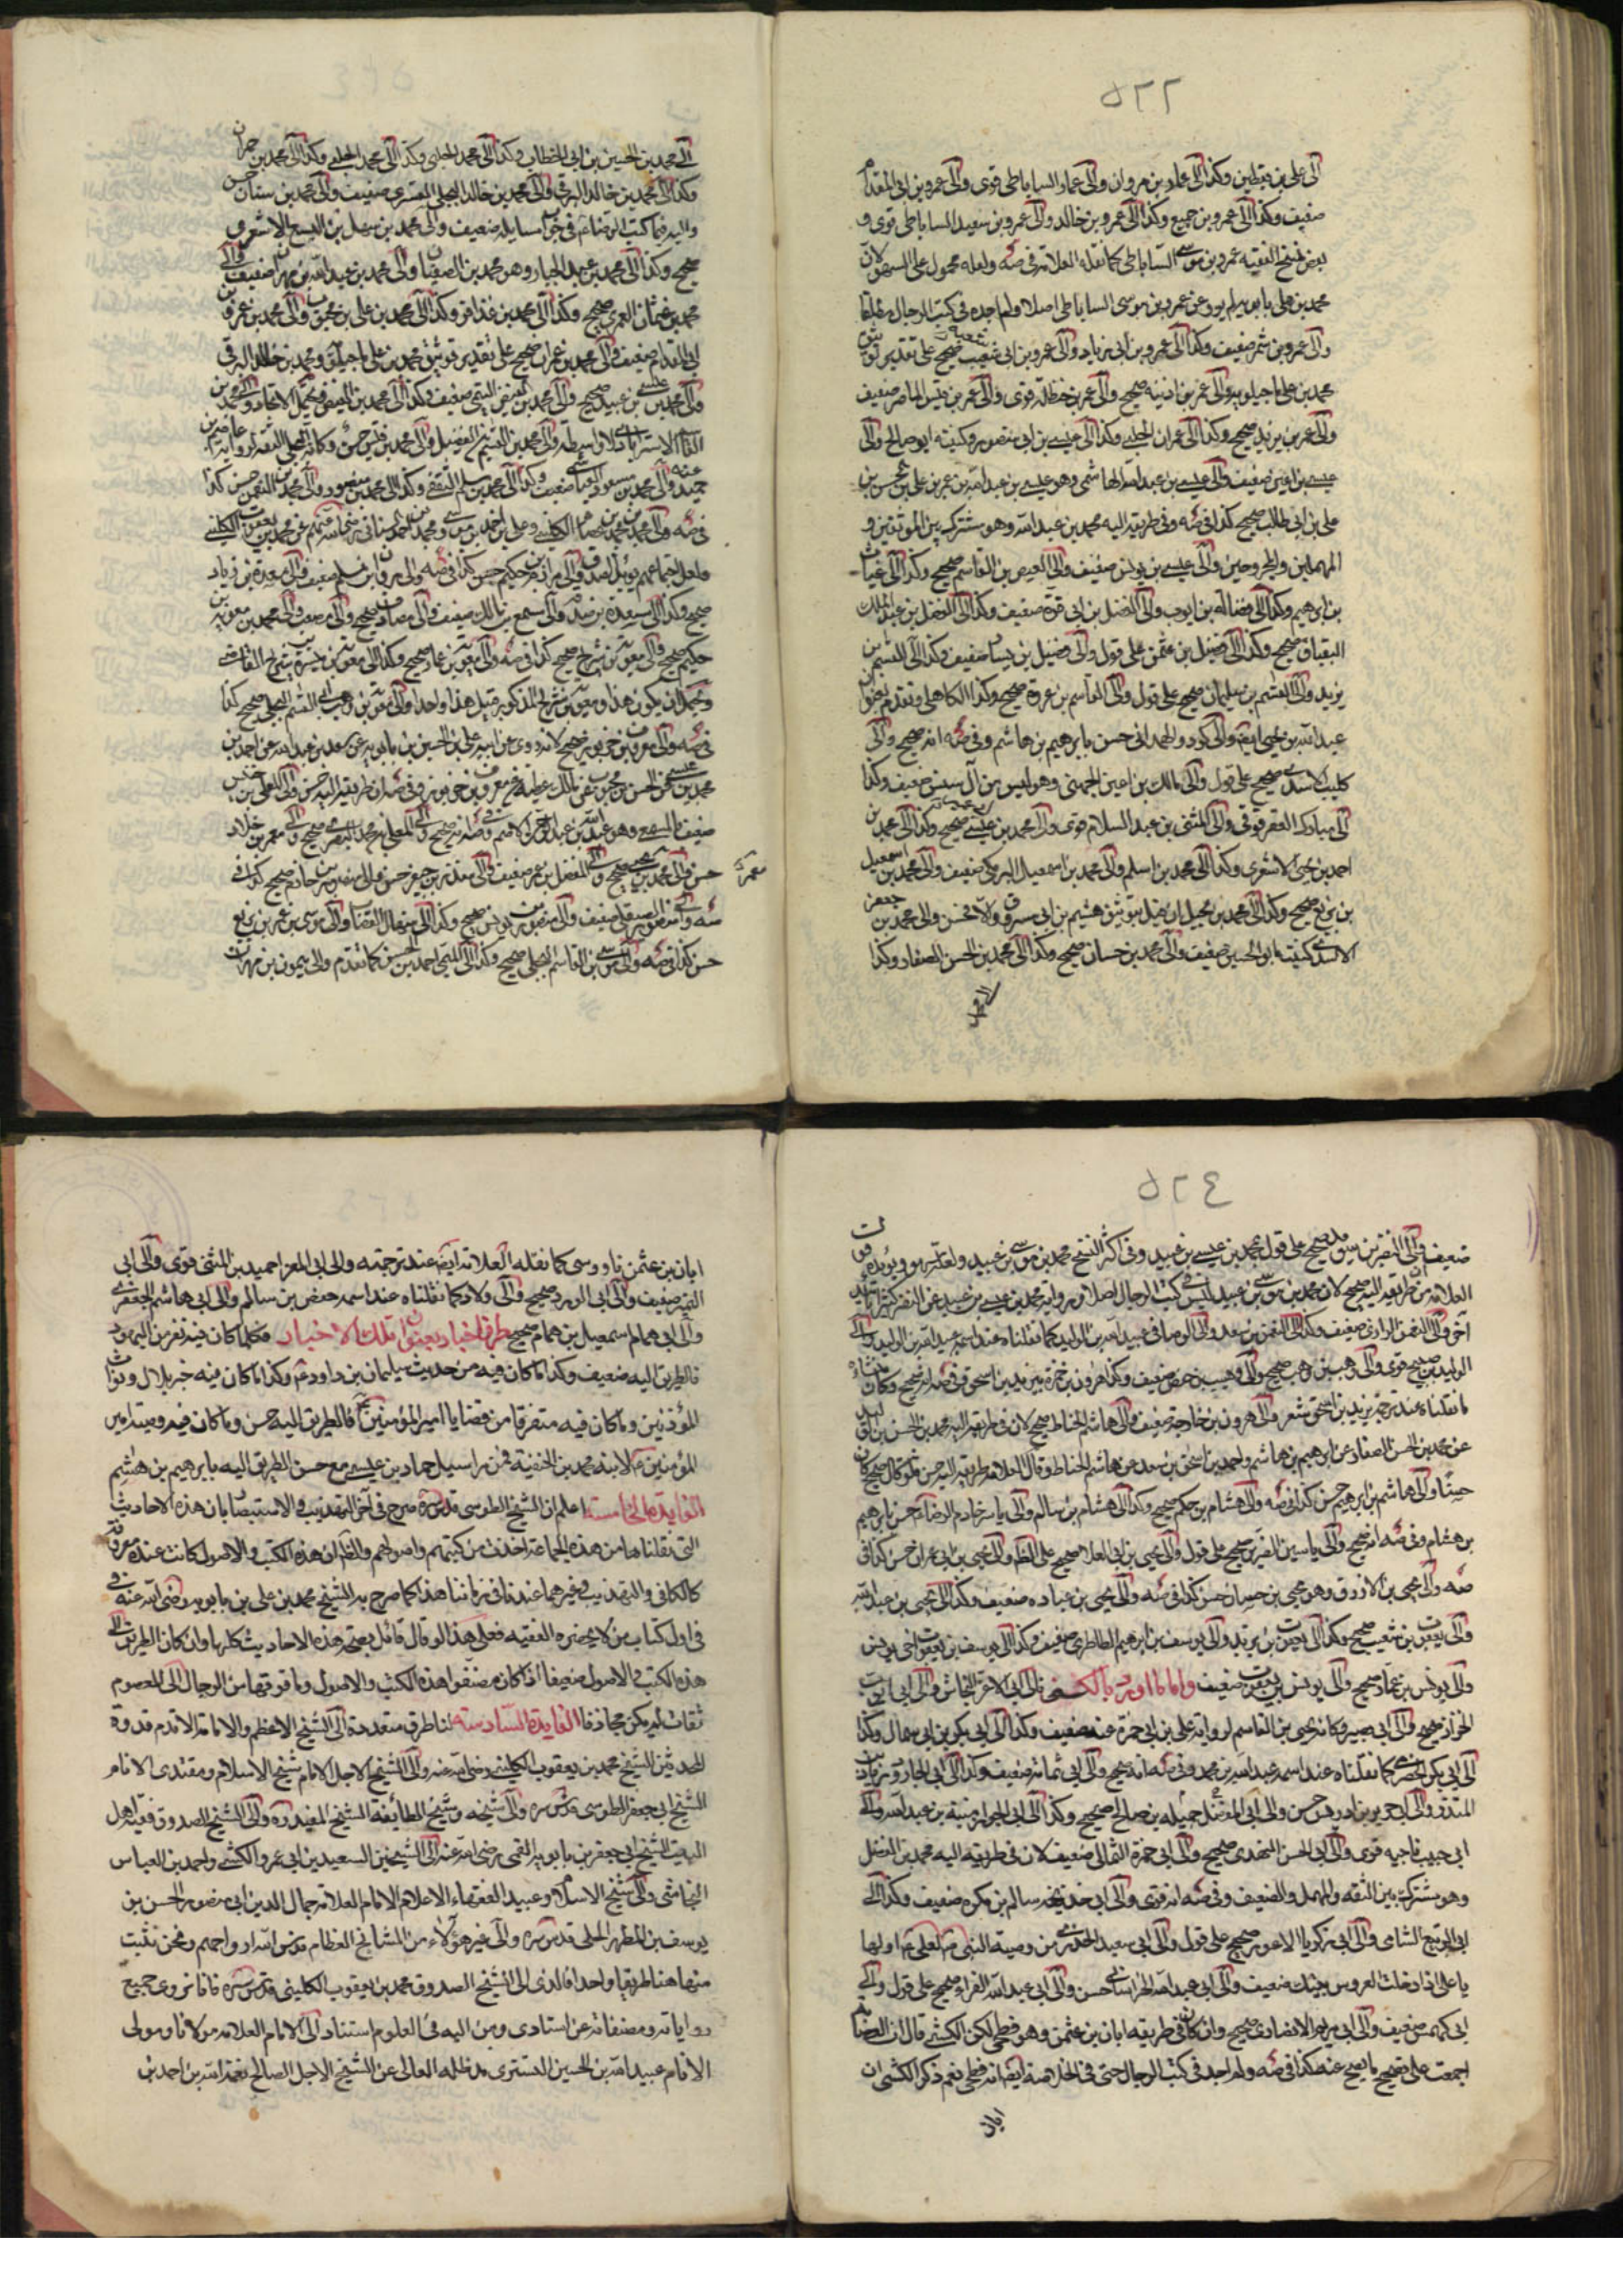 ٥٢٢
الى علي بن يقطين وكذا الى عمار بن مروان والى عمار الساباطي قوى والى عمرو بن ابي المقدام
ضعيف وكذا الى عمرو بن جميع وكذا الى عمرو بن خالد والى عمرو بن سعيد الساباطي قوى و
بعض نسخ الفقيه عمرو بن موسى الساباطي كما نقله العلامة في صه ولعله محمول على السهو لان
محمد بن علي بابويه لم يرو عن عمرو بن موسى الساباطي اصلا ولم اجده في كتب الرجال مطلقا
والى عمرو بن شمر ضعيف وكذا الى عمرو بن ابي زياد والى عمرو بن ابي شعبة صحيح على تقدير توثيق
محمد بن علي ماجيلويه والى عمر بن اذينة صحيح والى عمر بن حنظلة قوى والى عمر بن قيس الماصر ضعيف
والى عمر بن يزيد صحيح وكذا الى عمران الحلبي وكذا الى عيسى بن ابي منصور وكنيته ابو صالح والى
عيسى بن اعين ضعيف والى عيسى بن عبد الله الهاشمي وهو عيسى بن عبد الله بن عمر بن علي بن
علي بن ابي طالب صحيح كذا في صه وفي طريقه اليه محمد بن عبد الله وهو مشترك بين الموثقين و
المهملين والمجروحين والى عيسى بن يونس ضعيف والى العيص بن القاسم صحيح وكذا الى غياث
بن ابراهيم وكذا الى فضالة بن ايوب والى الفضل بن ابي قرة ضعيف وكذا الى الفضل بن عبد الملك
البقباق صحيح وكذا الى فضيل بن عثمن على قول والى فضيل بن يسار ضعيف وكذا الى القسم بن
بريد والى القسم بن سليمان صحيح على قول والى القاسم بن عروة صحيح وكذا الكاهلي وتقدم بعنوان
عبد الله بن يحيى ايضا والى كردويه الهمداني حسن بابراهيم بن هاشم وفي صه انه صحيح والى
كليب الاسدي صحيح على قول والى مالك بن اعين الجهني وهو ليس من آل سنسن ضعيف وكذا
الى مبارك العقرقوفي والى المثنى بن عبد السلام قوى والى محمد بن عيسى صحيح وكذا الى محمد بن
احمد بن يحيى الاشعري وكذا الى محمد بن اسلم والى محمد بن اسمعيل البرمكي ضعيف والى محمد بن اسمعيل
بن بزيع صحيح وكذا الى محمد بن بجيل ان قيل بتوثيق هشيم بن ابي مسروق والا فحسن والى محمد بن جعفر
الاسدي كنيته ابو الحسين ضعيف والى محمد بن حسان صحيح وكذا الى محمد بن الحسن الصفار وكذا
الى محمد
الى محمد بن الحسين بن ابي الخطاب وكذا الى محمد الحلبي وكذا الى محمد بن حمران
وكذا الى محمد بن خالد البرقي والى محمد بن خالد البجلي القسري ضعيف والى محمد بن سنان حسن
واليه فيما كتب الرضا في جواب مسايله ضعيف والى محمد بن سهل بن اليسع الاشعري
صحيح وكذا الى محمد بن عبد الجبار وهو محمد بن الصهبان والى محمد بن عبد الله بن مهران ضعيف والى
محمد بن عثمان العمري صحيح وكذا الى محمد بن عذافر وكذا الى محمد بن علي بن محبوب والى محمد بن عمرو بن
ابي المقدام ضعيف والى محمد بن عمران صحيح على تقدير توثيق محمد بن علي ماجيلويه ومحمد بن خالد البرقي
والى محمد بن عيسى بن عبيد صحيح والى محمد بن الفيض التيمي ضعيف وكذا الى محمد بن الفيض ويحتمل الاتحاد والى محمد بن
القاسم الاسترابادي بلا واسطة والى محمد بن القسم بن الفضيل والى محمد بن قيس حسن وكانه البجلي الثقة لرواية عاصم بن
حميد عنه والى محمد بن مسعود العياشي ضعيف وكذا الى محمد بن مسلم الثقفي وكذا الى محمد بن منصور والى محمد بن النعمن حسن كذا
في صه والى محمد بن محمد بن عصام الكليني وعلي بن احمد بن موسى ومحمد بن احمد السناني رضي الله عنهم عن محمد بن يعقوب الكليني
ولعل اجتماعهم يؤيد الصدق والى مرازم بن حكيم حسن كذا في صه والى مروان بن مسلم ضعيف والى مسعدة بن زياد
صحيح وكذا الى مسعدة بن صدقة والى مسمع بن مالك ضعيف والى مصادف صحيح والى مصعب والى محمد بن معوية بن
حكيم صحيح والى معوية بن شريح صحيح كذا في صه والى معوية بن عمار صحيح وكذا الى معوية بن ميسرة بن شريح القاضي
ويحتمل ان يكون هذا ومعوية بن شريح المذكور قبيل هذا واحدا والى معوية بن وهب ابي القسم البجلي صحيح كذا
في صه والى معروف بن خربوذ صحيح لانه روى عن ابيه علي بن الحسين بن بابويه عن سعد بن عبد الله عن احمد بن
محمد بن عيسى عن الحسن بن محبوب عن مالك بن عطية عن معروف بن خربوذ وفي صه ان طريقه اليه حسن والى المعلى بن خنيس
ضعيف المسمع وهو عبد الله بن عبد الرحمن الاصم وفي صه انه صحيح والى المعلى بن محمد البصري صحيح والى معمر بن خلاد
حسن والى معمر بن يحيى صحيح والى المفضل بن عمر ضعيف والى منذر بن جيفر حسن والى منصور بن حازم صحيح كذا في
صه والى منصور الصيقل ضعيف والى منصور بن يونس صحيح وكذا الى منهال القصاب والى موسى بن عمر بن بزيع
حسن كذا في صه والى موسى بن القاسم البجلي صحيح وكذا الى الميثمي احمد بن الحسن كما تقدم والى ميمون بن مهران
معمر
٥٢٤
ضعيف والى النضر بن سويد صحيح على قول بمحمد بن عيسى بن عبيد وفي اكثر النسخ محمد بن موسى بن عبيد ولعله سهو ويؤيده قول
العلامة ان طريقه اليه صحيح لان محمد بن موسى بن عبيد ليس في كتب الرجال اصلا ورواية محمد بن عيسى بن عبيد عن النضر كثيرا تأييد
آخر والى النعمن الرازي ضعيف وكذا الى النعمن بن سعد والى الوصافي عبيد الله بن الوليد كما نقلناه عند اسمه عبيد الله بن الوليد والى
الوليد بن صبيح قوى والى وهب بن وهب صحيح والى وهيب بن حفص ضعيف وكذا هارون بن حمزة بيزيد بن اسحق وفي صه انه صحيح وكان منشاءه
ما نقلناه عند ترجمة يزيد بن اسحق شعر والى هرون بن خارجة ضعيف والى هاشم الحناط صحيح لان في طريقه اليه محمد بن الحسن بن الوليد
عن محمد بن الحسن الصفار عن ابراهيم بن هاشم واحمد بن اسحق بن سعد عن هاشم الحناط وقال العلامة طريقه اليه حسن ولو قال صحيح كان
حسنا والى هاشم بن ابراهيم حسن كذا في صه والى هشام بن حكم صحيح وكذا الى هشام بن سالم والى ياسر خادم الرضا حسن بابراهيم
بن هشام وفي صه انه صحيح والى ياسين الضرير صحيح على قول والى يحيى بن ابي العلاء صحيح على الظ والى يحيى بن ابي عمران حسن كذا في
صه والى يحيى بن الازرق وهو يحيى بن حسان حسن كذا في صه والى يحيى بن عباده ضعيف وكذا الى يحيى بن عبد الله
والى يعقوب بن شعيب صحيح وكذا الى يعقوب بن يزيد والى يوسف بن ابراهيم الطاطري ضعيف وكذا الى يوسف بن يعقوب اخي يونس
والى يونس بن عمار صحيح والى يونس بن يعقوب ضعيف واما ما اورد بالكنى فالى ابي الاعز النخاس والى ابي ايوب
الخزاز صحيح والى ابي بصير وكانه يحيى بن القاسم لرواية علي بن ابي حمزة عنه ضعيف وكذا الى ابي بكر بن ابي سمال وكذا
الى ابي بكر الحضرمي كما نقلناه عند اسمه عبد الله بن محمد وفي صه انه صحيح والى ابي ثمامة ضعيف وكذا الى ابي الجارود زياد بن
المنذر والى ابي جرير بن ادريس حسن والى ابي جميلة بن صالح صحيح وكذا الى ابي الجوزا منبه بن عبد الله والى
ابي حبيب ناجيه قوى والى ابي الحسن النهدي صحيح والى ابي حمزة الثمالي ضعيف لان في طريقه اليه محمد بن الفضيل
وهو مشترك بين الثقة والمهمل والضعيف وفي صه انه قوى والى ابي خديجة سالم بن مكرم ضعيف وكذا الى
ابي الربيع الشامي والى ابي زكريا الاعور صحيح على قول والى ابي سعيد الخدري من وصية النبي ص لعلي ع اولها
يا علي اذا دخلت العروس بيتك ضعيف والى ابي عبد الله الخراساني حسن والى ابي عبد الله الفراء صحيح على قول والى
ابي كهمس ضعيف والى ابي مريم الانصاري صحيح وان كان في طريقه ابان بن عثمن وهو فطحي لكن الكشي قال ان العصابة
اجمعت على تصحيح ما يصح عنه كذا في صه ولم اجد في كتب الرجال حتى في الخلاصة ايضا انه فطحي نعم ذكر الكشي ان
ابان
ابان بن عثمن ناووسي كما نقله العلامة ايضا عند ترجمته والى ابي المعزا حميد بن المثنى قوى والى ابي
النمير ضعيف والى ابي الورد صحيح والى ولاد كما نقلناه عند اسمه حفص بن سالم والى ابي هاشم الجعفري
والى ابي همام اسمعيل بن همام صحيح طرق اخبار بعنوان تلك الاخبار فكلما كان فيه نفر من اليهود
فالطريق اليه ضعيف وكذا ما كان فيه من حديث سليمان بن داود ع وكذا ما كان فيه خبر بلال وثواب
المؤذنين وما كان فيه متفرقا من قضايا امير المؤمنين ع فالطريق اليه حسن وما كان فيه وصية امير
المؤمنين ع لابنه محمد بن الحنفية فمن مراسيل حماد بن عيسى مع حسن الطريق اليه بابراهيم بن هاشم
الفايدة الخامسة اعلم ان الشيخ الطوسي قدس سره صرح في آخر التهذيب والاستبصار بان هذه الاحاديث
التي نقلناها من هذه الجماعة اخذت من كتبهم واصولهم والظ ان هذه الكتب والاصول كانت عنده معروفة
كالكافي والتهذيب وغيرهما عندنا في زماننا هذا كما صرح به الشيخ محمد بن علي بن بابويه رضي الله عنه
في اول كتاب من لا يحضره الفقيه فعلى هذا لو قال قائل بصحة هذه الاحاديث كلها وان كان الطريق الى
هذه الكتب والاصول ضعيفا اذا كان مصنفوا هذه الكتب والاصول وما فوقها من الرجال الى المعصوم
ثقات لم يكن مجازفا الفايدة السادسة لنا طرق متعددة الى الشيخ الاعظم والامام الاقدم قدوة
المحدثين الشيخ محمد بن يعقوب الكليني رضي الله عنه والى الشيخ الاجل الامام شيخ الاسلام ومقتدى الانام
الشيخ ابي جعفر الطوسي قدس سره والى شيخه وشيخ الطائفة الشيخ المفيد ره والى الشيخ الصدوق فقيه اهل
البيت الشيخ ابي جعفر بن بابويه القمي رضي الله عنه والى الشيخين السعيدين ابي عمرو الكشي واحمد بن العباس
النجاشي والى شيخ الاسلام وعبيد الفقهاء الاعلام الامام العلامة جمال الدين ابي منصور الحسن بن
يوسف بن المطهر الحلي قدس سره والى غير هؤلاء من المشايخ العظام قدس الله ارواحهم ونحن نثبت
منها هنا طريقا واحدا فالذي الى الشيخ الصدوق محمد بن يعقوب الكليني قدس سره فانا نروي جميع
رواياته ومصنفاته عن استادي ومن اليه في العلوم استنادي الامام العلامة مولانا ومولى
الانام عبيد الله بن الحسين التستري مد ظله العالي عن الشيخ الاجل الصالح نعمة الله بن احمد بن